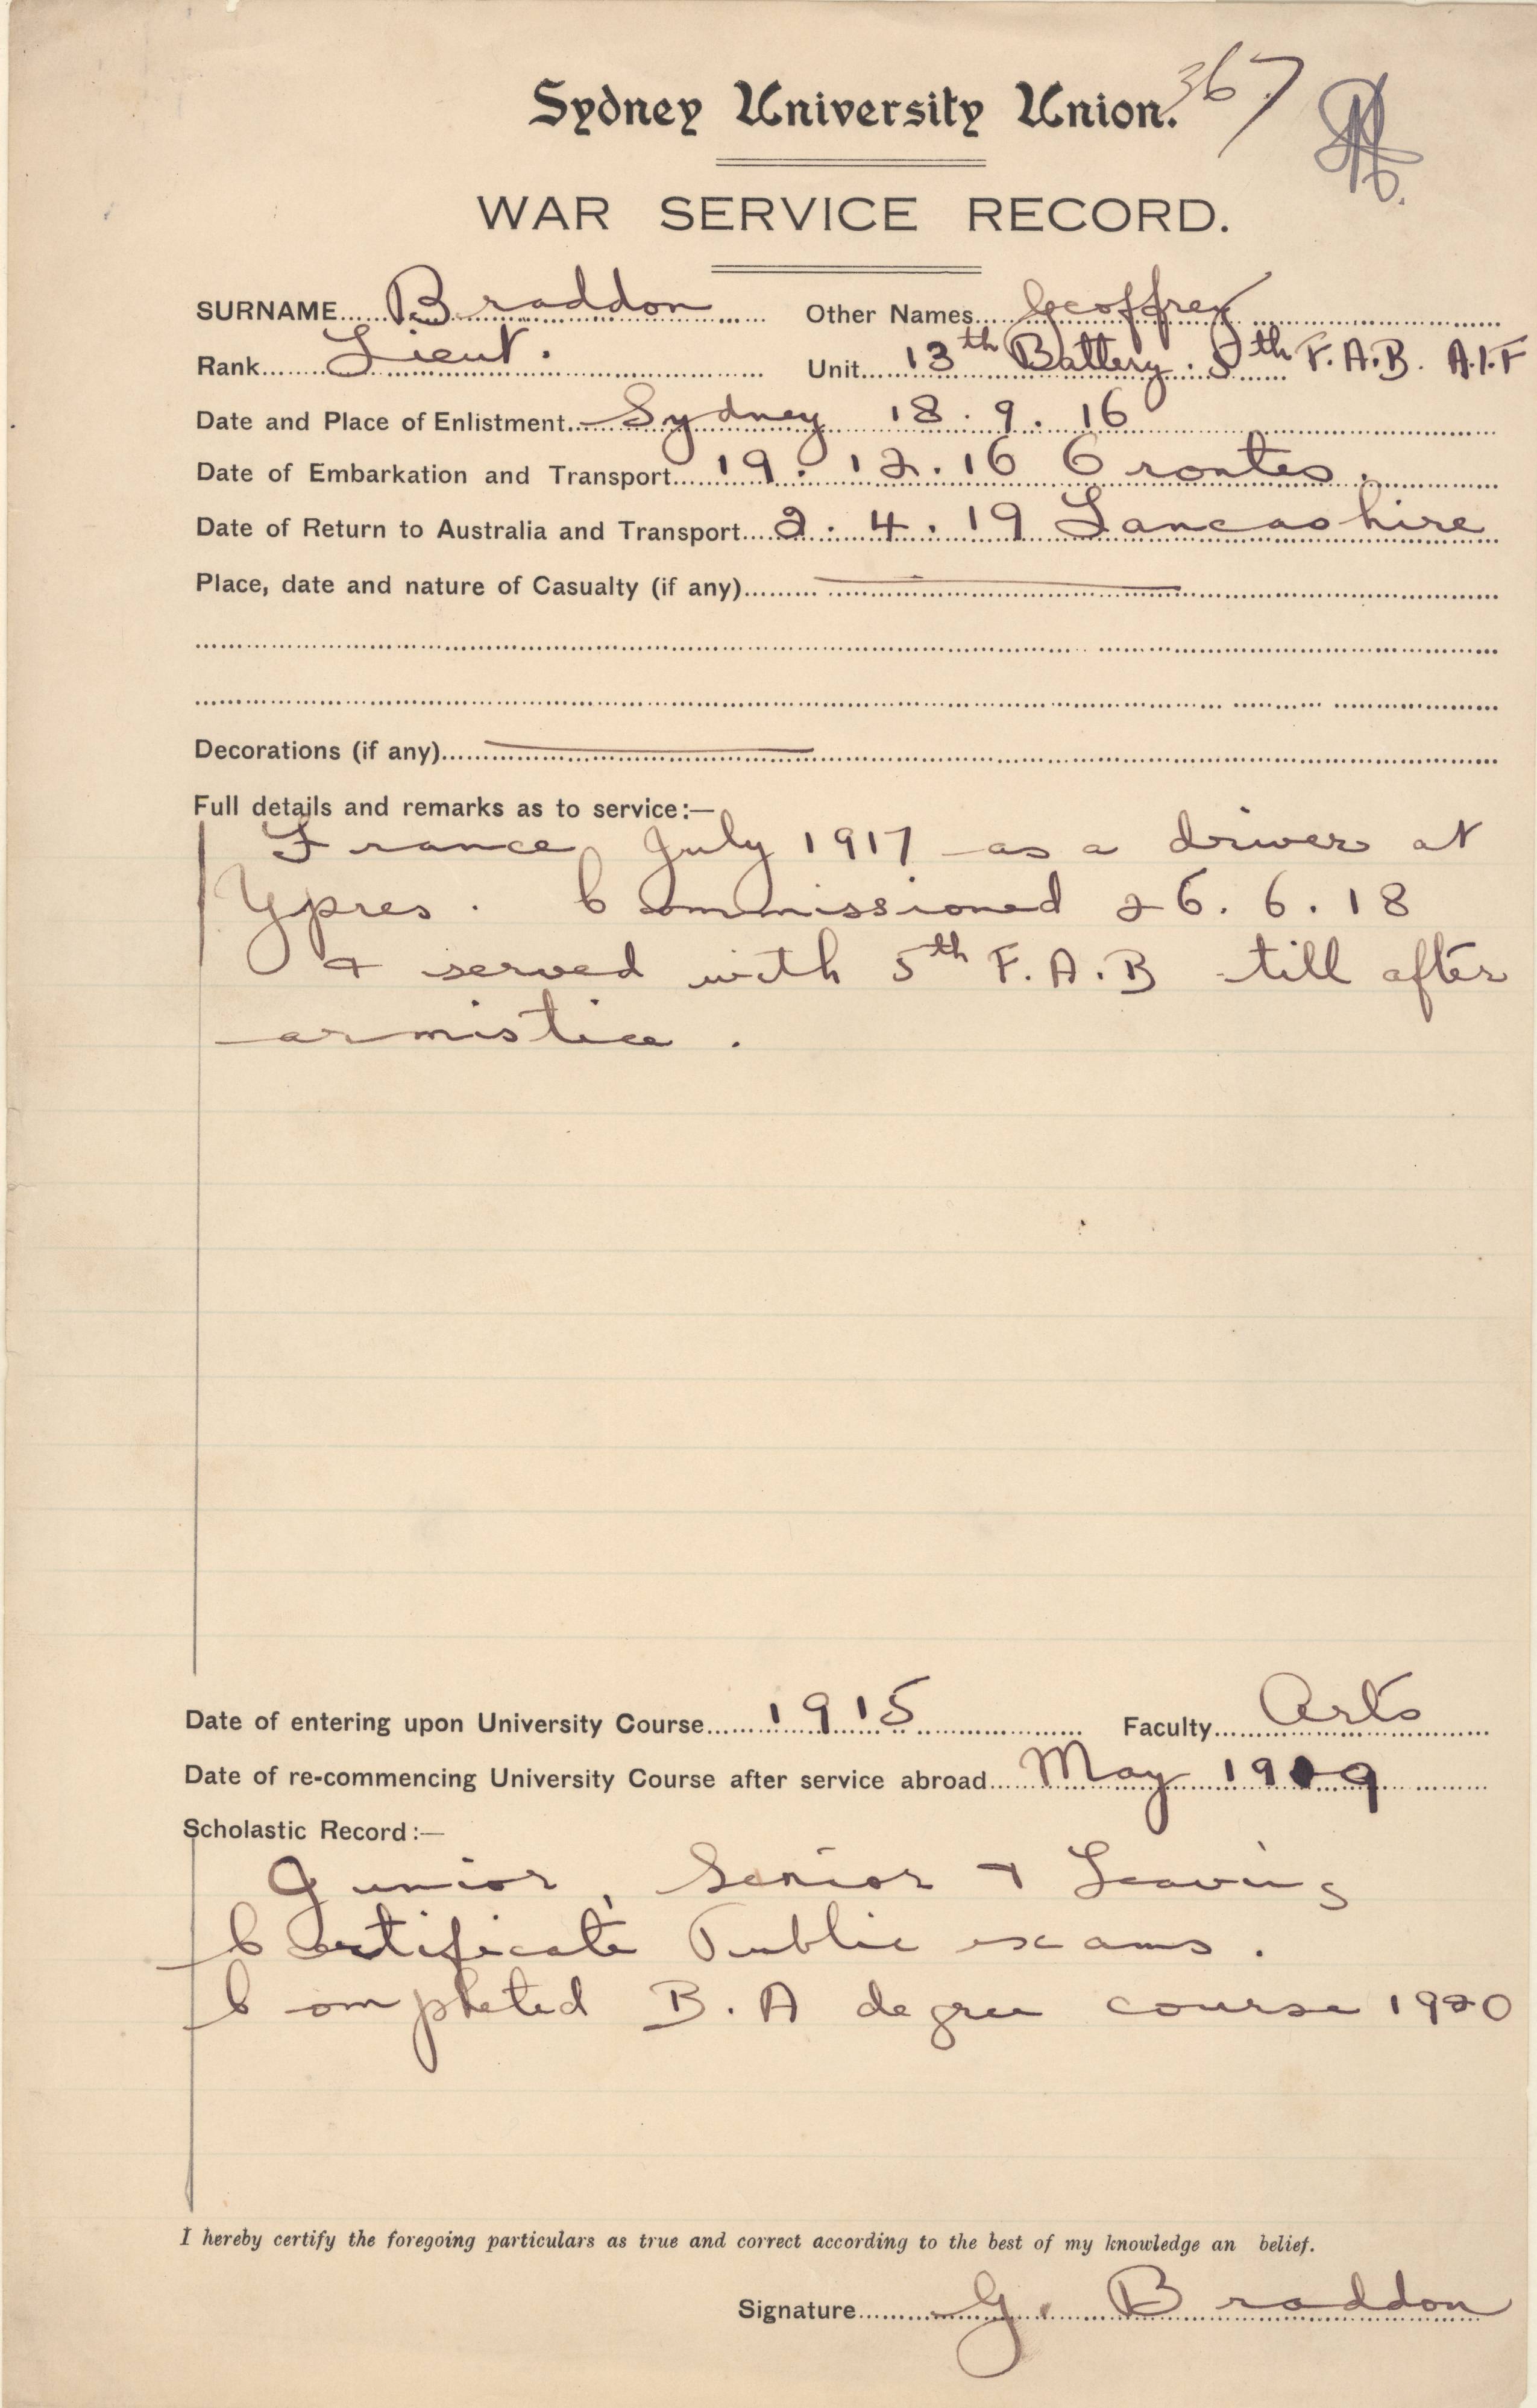 Sydney University Union. 367
WAR SERVICE RECORD.
SURNAME Braddon Other Names Geoffrey
Rank Lieut. Unit 13th Battery. 5th F.A.B. A.I.F
Date and Place of Enlistment Sydney 18.9.16
Date of Embarkation and Transport 19.12.16 Orontes.
Date of Return to Australia and Transport 2.4.19 Lancashire
Place, date and nature of Casualty (if any)
Decorations (if any)
Full details and remarks as to service:—
France July 1917 as a driver at
Ypres. Commissioned 26.6.18
+ served with 5th F.A.B till after
armistice.
Date of entering upon University Course 1915 Faculty Arts
Date of re-commencing University Course after service abroad May 1919
Scholastic Record:—
Junior, Senior + Leaving
Certificate Public exams.
Completed B.A degree course 1920
I hereby certify the foregoing particulars as true and correct according to the best of my knowledge an belief.
Signature G. Braddon